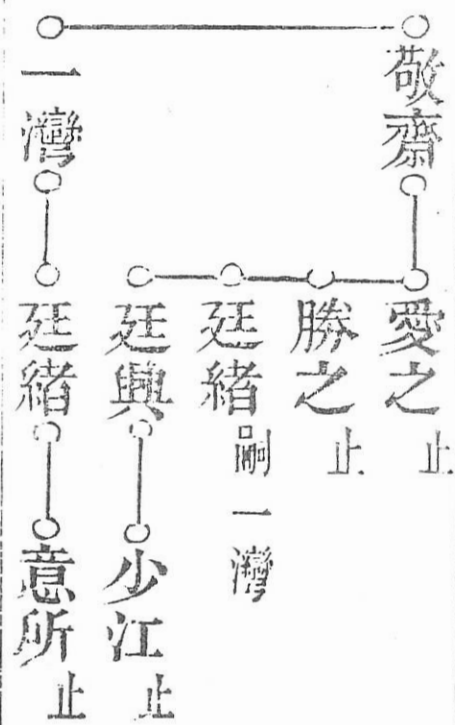 敬齋
愛之止
勝之止
廷緒嗣一灣
廷興
少江止
一灣
廷緒
意所止